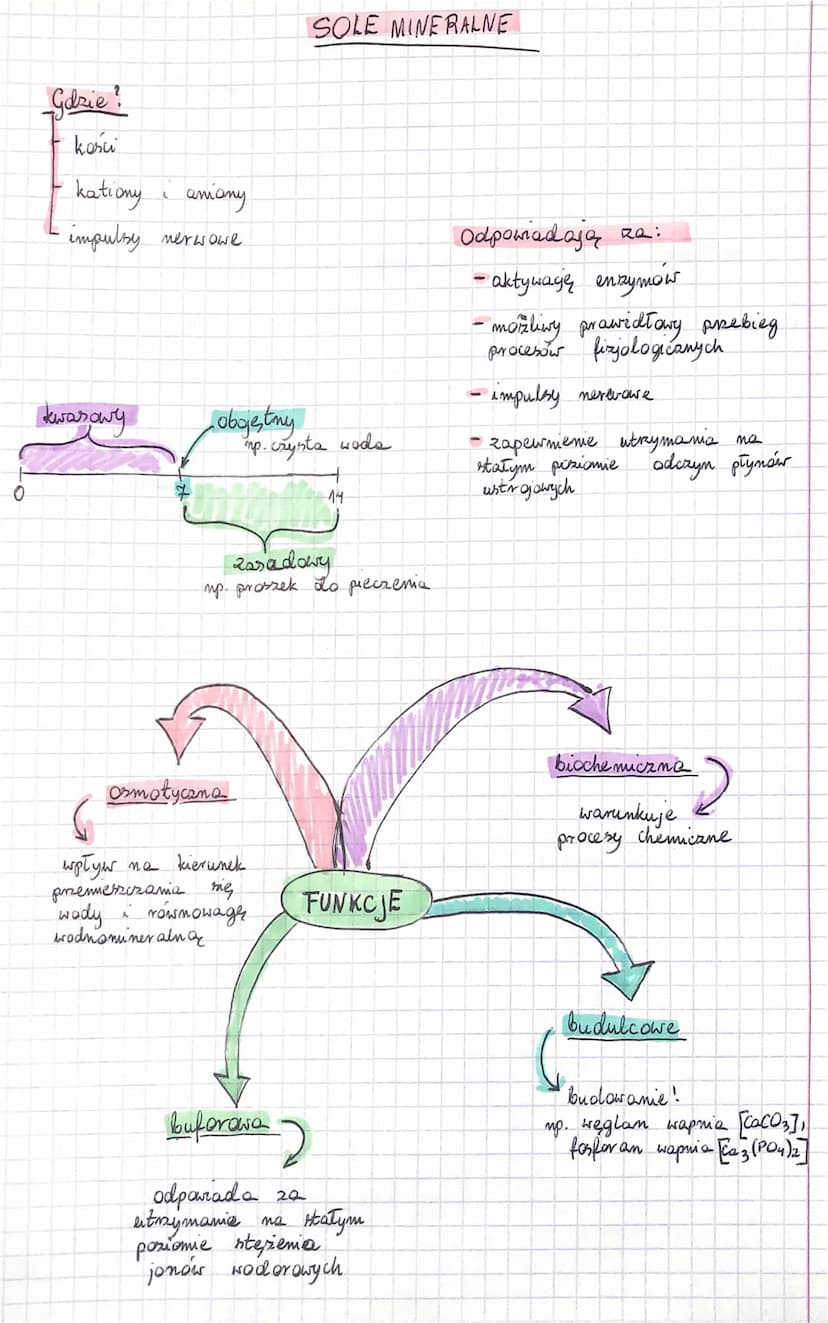 SOLE MINERALNE
Gdzie?
- kości
- kationy i aniony
- impulsy nerwowe
Odpowiadają za:
- aktywację enzymów
- możliwy prawidłowy przebieg
procesów fizjologicznych
- impulsy nerwowe
- zapewnienie utrzymania na
stałym poziomie odczyn płynów
ustrojowych
kwasowy
obojętny
np. czysta woda
0
7
14
zasadowy
np. proszek do pieczenia
FUNKCJE
osmotyczna
wpływ na kierunek
przemieszczania się
wody i równowagę
wodnomineralną
biochemiczna
warunkuje
procesy chemiczne
budulcowe
budowanie!
np. węglan wapnia [CaCO3],
fosforan wapnia [Ca3(PO4)2]
buforowa
odpowiada za
utrzymanie na stałym
poziomie stężenia
jonów wodorowych